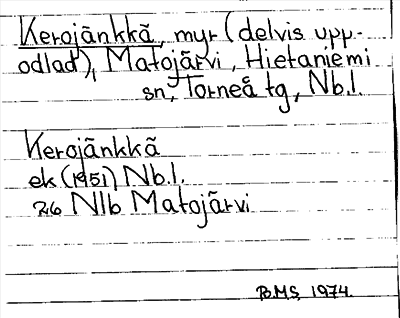 Kerojänkkä, myr (delvis upp-
odlad), Matojärvi, Hietaniemi
sn, Torneå tg, Nb.l.
Kerojänkkä
ek (1951) Nb.l.
26 Nlb Matojärvi
B.M.S, 1974.